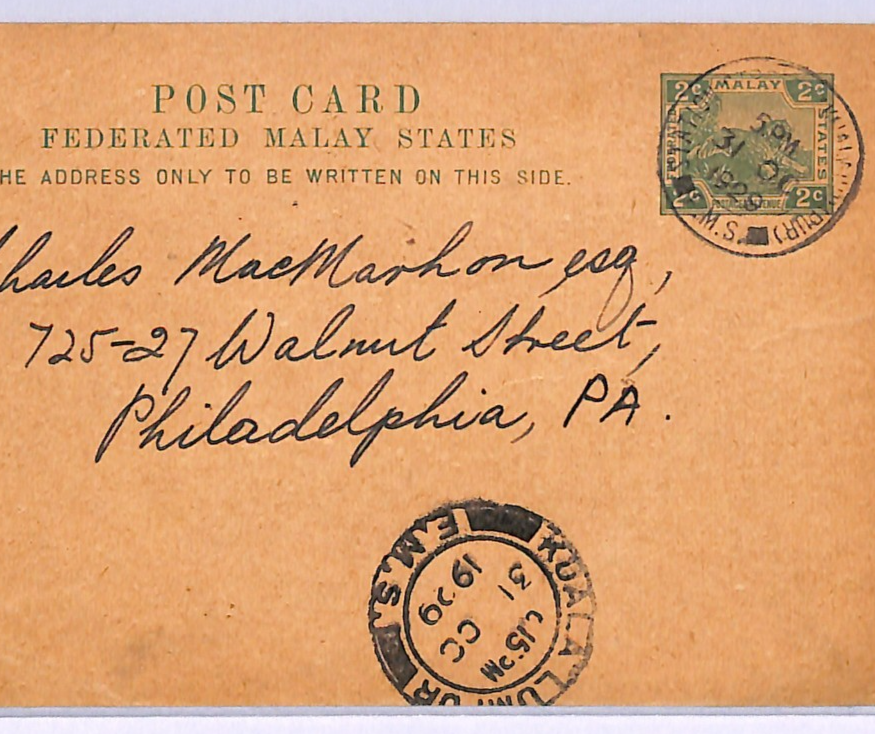 POST CARD
FEDERATED MALAY STATES
HE ADDRESS ONLY TO BE WRITTEN ON THIS SIDE.
2c MALAY 2c
STATES
2c 2c
KUALA LUMPUR)
5 PM
31 OC
1929
Charles MacMarhon esq,
725-27 Walnut Street,
Philadelphia, PA.
KUALA LUMPUR
F.M.S.
PM
31 OC
1929